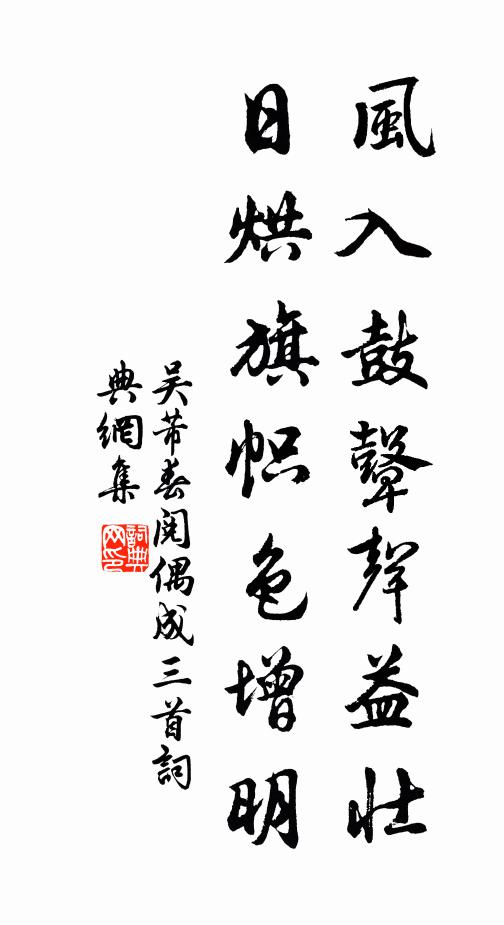 風入鼓鼙聲益壯
日烘旗幟色增明
吳芾春閱偶成三首詞
典網集
詞典
网印